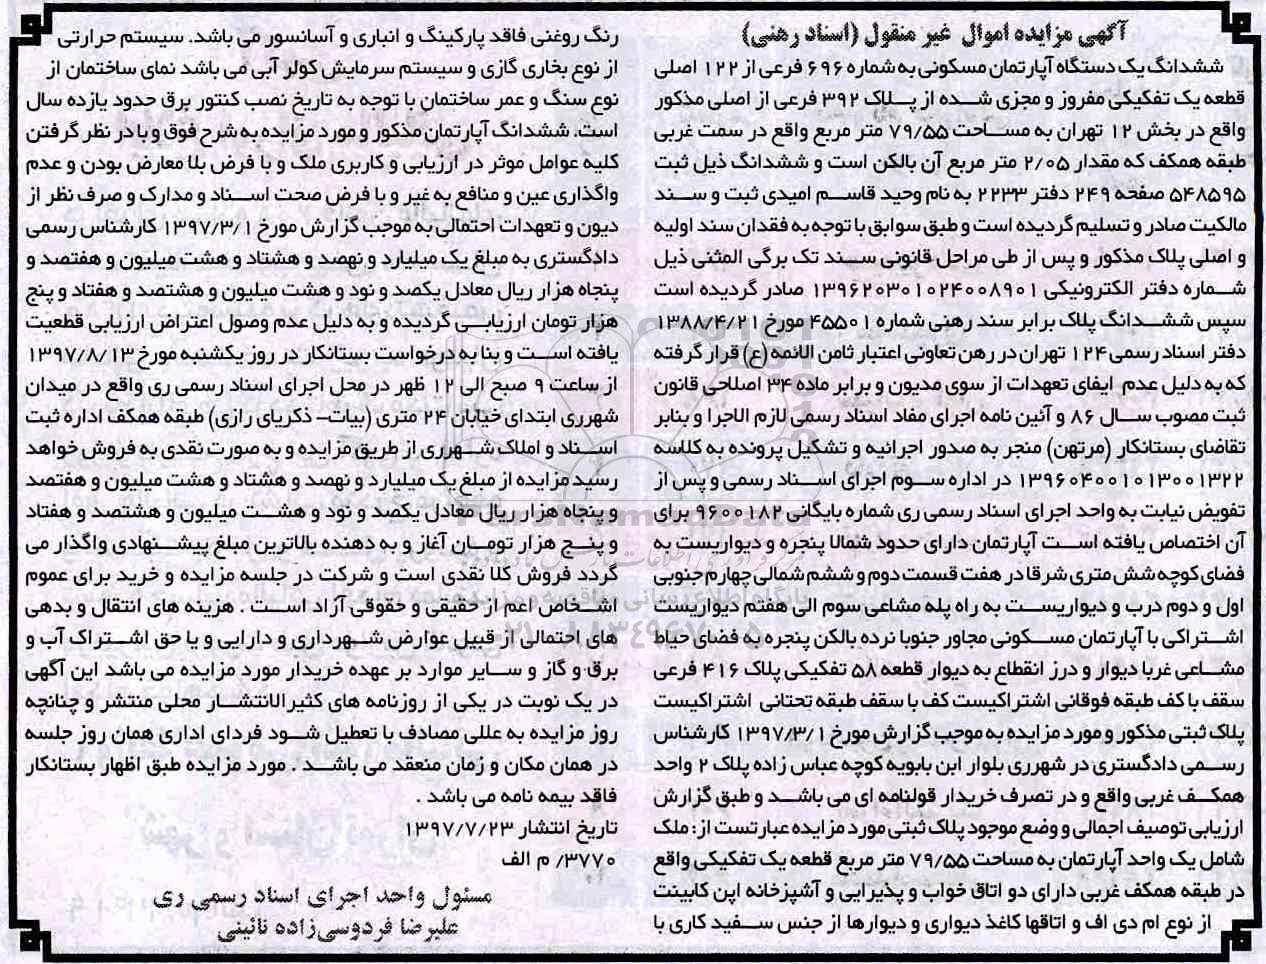 آگهی مزایده اموال غیر منقول (اسناد رهنی)
ششدانگ یک دستگاه آپارتمان مسکونی به شماره ۶۹۶ فرعی از ۱۲۲ اصلی
قطعه یک تفکیکی مفروز و مجزی شده از پلاک ۳۹۲ فرعی از اصلی مذکور
واقع در بخش ۱۲ تهران به مساحت ۷۹/۵۵ متر مربع واقع در سمت غربی
طبقه همکف که مقدار ۲/۰۵ متر مربع آن بالکن است و ششدانگ ذیل ثبت
۵۴۸۵۹۵ صفحه ۲۴۹ دفتر ۲۲۳۳ به نام وحید قاسم امیدی ثبت و سند
مالکیت صادر و تسلیم گردیده است و طبق سوابق با توجه به فقدان سند اولیه
و اصلی پلاک مذکور و پس از طی مراحل قانونی سند تک برگی المثنی ذیل
شماره دفتر الکترونیکی ۱۳۹۶۲۰۳۰۱۰۲۴۰۰۸۹۰۱ صادر گردیده است
سپس ششدانگ پلاک برابر سند رهنی شماره ۴۵۵۰۱ مورخ ۱۳۸۸/۴/۲۱
دفتر اسناد رسمی ۱۲۴ تهران در رهن تعاونی اعتبار ثامن الائمه (ع) قرار گرفته
که به دلیل عدم ایفای تعهدات از سوی مدیون و برابر ماده ۳۴ اصلاحی قانون
ثبت مصوب سال ۸۶ و آئین نامه اجرای مفاد اسناد رسمی لازم الاجرا و بنابر
تقاضای بستانکار (مرتهن) منجر به صدور اجرائیه و تشکیل پرونده به کلاسه
۱۳۹۶۰۴۰۰۱۰۱۳۰۰۱۳۲۲ در اداره سوم اجرای اسناد رسمی و پس از
تفویض نیابت به واحد اجرای اسناد رسمی ری شماره بایگانی ۹۶۰۰۱۸۲ برای
آن اختصاص یافته است آپارتمان دارای حدود شمالا پنجره و دیواریست به
فضای کوچه شش متری شرقا در هفت قسمت دوم و ششم شمالی چهارم جنوبی
اول و دوم درب و دیواریست به راه پله مشاعی سوم الی هفتم دیواریست
اشتراکی با آپارتمان مسکونی مجاور جنوبا نرده بالکن پنجره به فضای حیاط
مشاعی غربا دیوار و درز انقطاع به دیوار قطعه ۵۸ تفکیکی پلاک ۴۱۶ فرعی
سقف با کف طبقه فوقانی اشتراکیست کف با سقف طبقه تحتانی اشتراکیست
پلاک ثبتی مذکور و مورد مزایده به موجب گزارش مورخ ۱۳۹۷/۳/۱ کارشناس
رسمی دادگستری در شهرری بلوار ابن بابویه کوچه عباس زاده پلاک ۲ واحد
همکف غربی واقع و در تصرف خریدار قولنامه ای می باشد و طبق گزارش
ارزیابی توصیف اجمالی و وضع موجود پلاک ثبتی مورد مزایده عبارتست از: ملک
شامل یک واحد آپارتمان به مساحت ۷۹/۵۵ متر مربع قطعه یک تفکیکی واقع
در طبقه همکف غربی دارای دو اتاق خواب و پذیرایی و آشپزخانه اپن کابینت
از نوع ام دی اف و اتاقها کاغذ دیواری و دیوارها از جنس سفید کاری با
رنگ روغنی فاقد پارکینگ و انباری و آسانسور می باشد. سیستم حرارتی
از نوع بخاری گازی و سیستم سرمایش کولر آبی می باشد نمای ساختمان از
نوع سنگ و عمر ساختمان با توجه به تاریخ نصب کنتور برق حدود یازده سال
است. ششدانگ آپارتمان مذکور و مورد مزایده به شرح فوق و با در نظر گرفتن
کلیه عوامل موثر در ارزیابی و کاربری ملک و با فرض بلا معارض بودن و عدم
واگذاری عین و منافع به غیر و با فرض صحت اسناد و مدارک و صرف نظر از
دیون و تعهدات احتمالی به موجب گزارش مورخ ۱۳۹۷/۳/۱ کارشناس رسمی
دادگستری به مبلغ یک میلیارد و نهصد و هشتاد و هشت میلیون و هفتصد و
پنجاه هزار ریال معادل یکصد و نود و هشت میلیون و هشتصد و هفتاد و پنج
هزار تومان ارزیابی گردیده و به دلیل عدم وصول اعتراض ارزیابی قطعیت
یافته است و بنا به درخواست بستانکار در روز یکشنبه مورخ ۱۳۹۷/۸/۱۳
از ساعت ۹ صبح الی ۱۲ ظهر در محل اجرای اسناد رسمی ری واقع در میدان
شهرری ابتدای خیابان ۲۴ متری (بیات- ذکریای رازی) طبقه همکف اداره ثبت
اسناد و املاک شهرری از طریق مزایده و به صورت نقدی به فروش خواهد
رسید مزایده از مبلغ یک میلیارد و نهصد و هشتاد و هشت میلیون و هفتصد
و پنجاه هزار ریال معادل یکصد و نود و هشت میلیون و هشتصد و هفتاد
و پنج هزار تومان آغاز و به دهنده بالاترین مبلغ پیشنهادی واگذار می
گردد فروش کلا نقدی است و شرکت در جلسه مزایده و خرید برای عموم
اشخاص اعم از حقیقی و حقوقی آزاد است . هزینه های انتقال و بدهی
های احتمالی از قبیل عوارض شهرداری و دارایی و یا حق اشتراک آب و
برق و گاز و سایر موارد بر عهده خریدار مورد مزایده می باشد این آگهی
در یک نوبت در یکی از روزنامه های کثیرالانتشار محلی منتشر و چنانچه
روز مزایده به عللی مصادف با تعطیل شود فردای اداری همان روز جلسه
در همان مکان و زمان منعقد می باشد . مورد مزایده طبق اظهار بستانکار
فاقد بیمه نامه می باشد .
تاریخ انتشار ۱۳۹۷/۷/۲۳
۳۷۷۰/ م الف
مسئول واحد اجرای اسناد رسمی ری
علیرضا فردوسی‌زاده نائینی